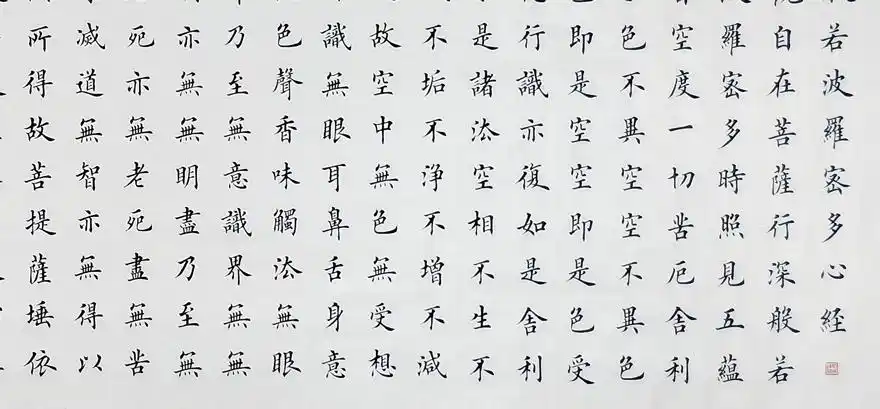 若波羅密多心經
自在菩薩行深般若
羅密多時照見五蘊
空度一切苦厄舍利
色不異空空不異色
即是空空即是色受
行識亦復如是舍利
是諸法空相不生不
不垢不淨不增不減
故空中無色無受想
識無眼耳鼻舌身意
色聲香味觸法無眼
乃至無意識界無無
亦無無明盡乃至無
死亦無老死盡無苦
滅道無智亦無得以
所得故菩提薩埵依